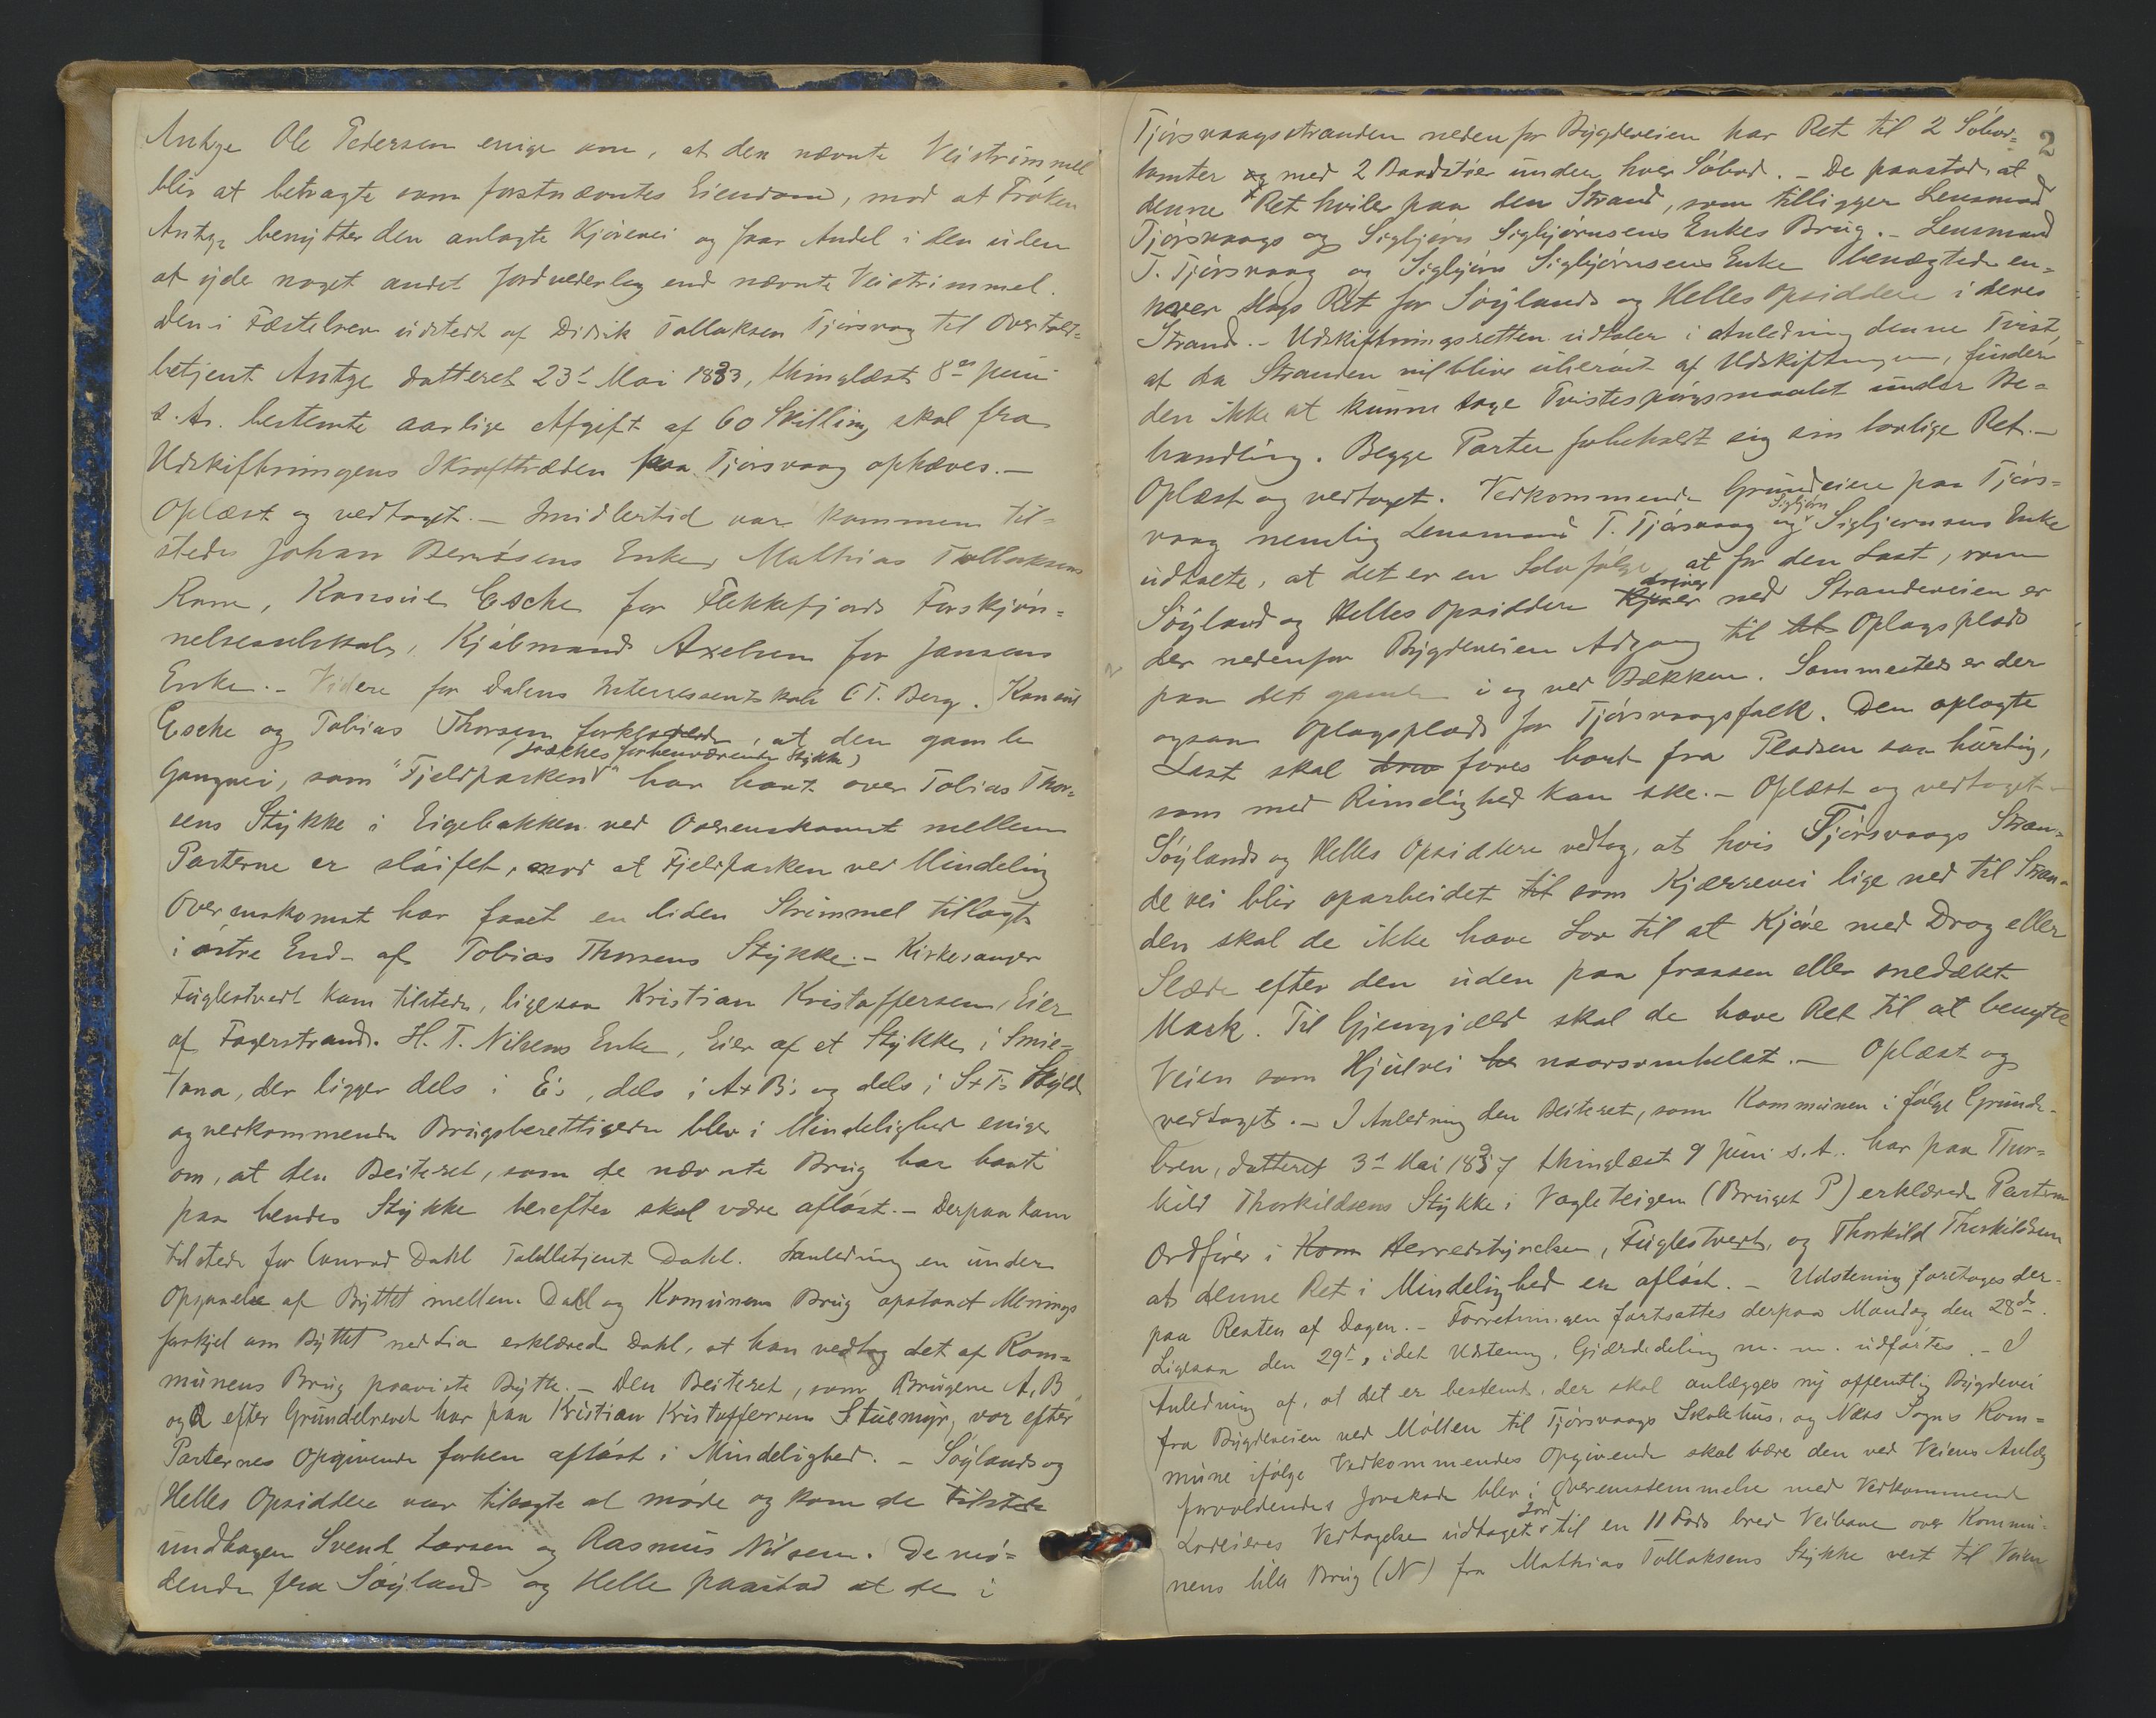 Antze Ole Pedersen enige om, at den nævnte Veistrimmel
blir at betragte som fastnævntes Eiendom, mod at Frøken
Antze benytter den anlagte Kjørevei og faar Andel i den uden
at yde noget andet Jordvederlag end nævnte Veistrimmel.
Den i Fæstebrev udstedt af Didrik Tollaksen Tjørsvaag til Overtold-
betjent Antze datteret 23de Mai 1833, thinglæst 8de Juni
s. A. bestemte aarlige Afgift af 60 Skilling skal fra
Udskiftningens Ikrafttræden paa Tjørsvaag ophæves. —
Oplæst og vedtaget. — Imidlertid var kommen til-
stede Johan Berntsens Enke, Mathias Tollaksens
Kone, Konsul Esche for Flekkefjords Forskjøn-
nelsesselskab, Kjøbmand Axelsen for Jansens
Enke. — Videre for Dalens Interessentskab C T. Berg. Konsul
Esche og Tobias Thorsen forklarede, at den gamle
(Jasches forhenværende Stykke)
Gangvei, som "Fjeldparken" har havt over Tobias Thor-
sens Stykke i Eigebakken ved Overenskomst mellem
Parterne er sløifet, mod at Fjeldparken ved Mindelig
Overenskomst har faaet en liden Strimmel tillagt
i østre Ende af Tobias Thorsens Stykke. — Kirkesanger
Fuglestvedt kom tilstede, ligesaa Kristian Kristoffersen, Eier
af Fagerstrand. H. T. Nilsens Enke, Eier af et Stykke i Smie-
tona, der ligger dels i E's, dels i A+B's og dels i S+T's Skyld
og vedkommende Brugsberettigede blev i Mindelighed enige
om, at den Beiteret, som de nævnte Brug har havt
paa hendes Stykke herefter skal være afløst. — Derpaa kom
tilstede for Conrad Dahl Toldbetjent Dahl. I Anledning en under
Opgaaelse af Byttet mellem Dahl og Komunens Brug opstaaet Menings
forskjel om Byttet ned Lia erklærede Dahl, at han vedtog det af Kom-
munens Brug paaviste Bytte. — Den Beiteret, som Brugene A, B
og Q efter Grundebrevet har paa Kristian Kristoffersens Stuemyr, var efter
Parternes Opgivende forhen afløst i Mindelighed. — Søylands og
Helles Opsiddere var tilsagte at møde og kom de tilstede
undtagen Svend Larsen og Rasmus Nilsen. De mø-
dende fra Søyland og Helle paastod at de i
2
Tjørsvaagsstranden nedenfor Bygdeveien har Ret til 2 Søbod-
tomter og med 2 Baadstøer under hver Søbod. — De paastod, at
denne Ret hviler paa den Strand, som tilligger Lensmand
Tjørsvaags og Sigbjørn Sigbjørnsens Enkes Brug. — Lensmand
T. Tjørsvaag og Sigbjørn Sigbjørnsens Enke benægtede en-
hver slags Ret for Søylands og Helles Opsiddere i deres
Strand. — Udskiftningsretten udtaler i Anledning denne Tvist,
at da Stranden vil blive uberørt af Udskiftningen, finder
den ikke at kunne tage Tvistespørgsmaalet under Be-
handling. Begge Parter forbeholdt sig sin lovlige Ret. —
Oplæst og vedtaget. Vedkommende Grundeiere paa Tjørs-
Sigbjørn
vaag nemlig Lensmand T. Tjørsvaag og Sigbjørnsens Enke
udtalte, at det er en Selvfølge, at for den Last, som
driver
Søyland og Helles Opsiddere kjører ned Strandeveien er
der nedenfor Bygdeveien Adgang til at Oplagsplads
paa det gamle i og ved Bækken. Sammesteds er der
ogsaa Oplagsplads for Tjørsvaagsfolk. Den oplagte
Last skal drive føres bort fra Pladsen saa hurtig,
som med Rimelighed kan ske. — Oplæst og vedtaget —
Søylands og Helles Opsiddere vedtog, at hvis Tjørsvaags Stran-
devei blir oparbeidet til som Kjærrevei lige ned til Stran-
den skal de ikke have Lov til at Kjøre med Drog eller
Slæde efter den uden paa frossen eller snedækt
Mark. Til Gjengjæld skal de have Ret til at benytte
Veien som Hjulvei he naarsomhelst. — Oplæst og
vedtaget. — I Anledning den Beiteret, som Kommunen i følge Grunde-
brev, datteret 3de Mai 1897 thinglæst 9 Juni s. A. har paa Thor-
kild Thorkildsens Stykke i Vagleteigen (Bruget P) erklærede Partern
Ordfører i Kom Herredstyrelsen, Fuglestvedt, og Thorkild Thorkildsen
at denne Ret i Mindelighed er afløst. — Udstening foretoges der-
paa Resten af Dagen. — Forretningen fortsattes derpaa Mandag den 28de.
Ligesaa den 29de, idet Udstening, Gjærdedeling m. m. udførtes. — I
Anledning af, at det er bestemt, der skal anlægges ny offentlig Bygdevei
fra Bygdeveien ved Møllen til Tjørsvaags Skolehus, og Næs Sogns Kom-
mune ifølge Vedkommendes Opgivende skal bære den ved Veiens Anlæg
forvoldendes Jorskade blev i Overensstemmelse med Vedkommende
Jord
Lodeieres Vedtagelse udtaget til en 11 Fods bred Veibane over Kommu-
nens lille Brug (N) fra Mathias Tollaksens Stykke vest til Veien